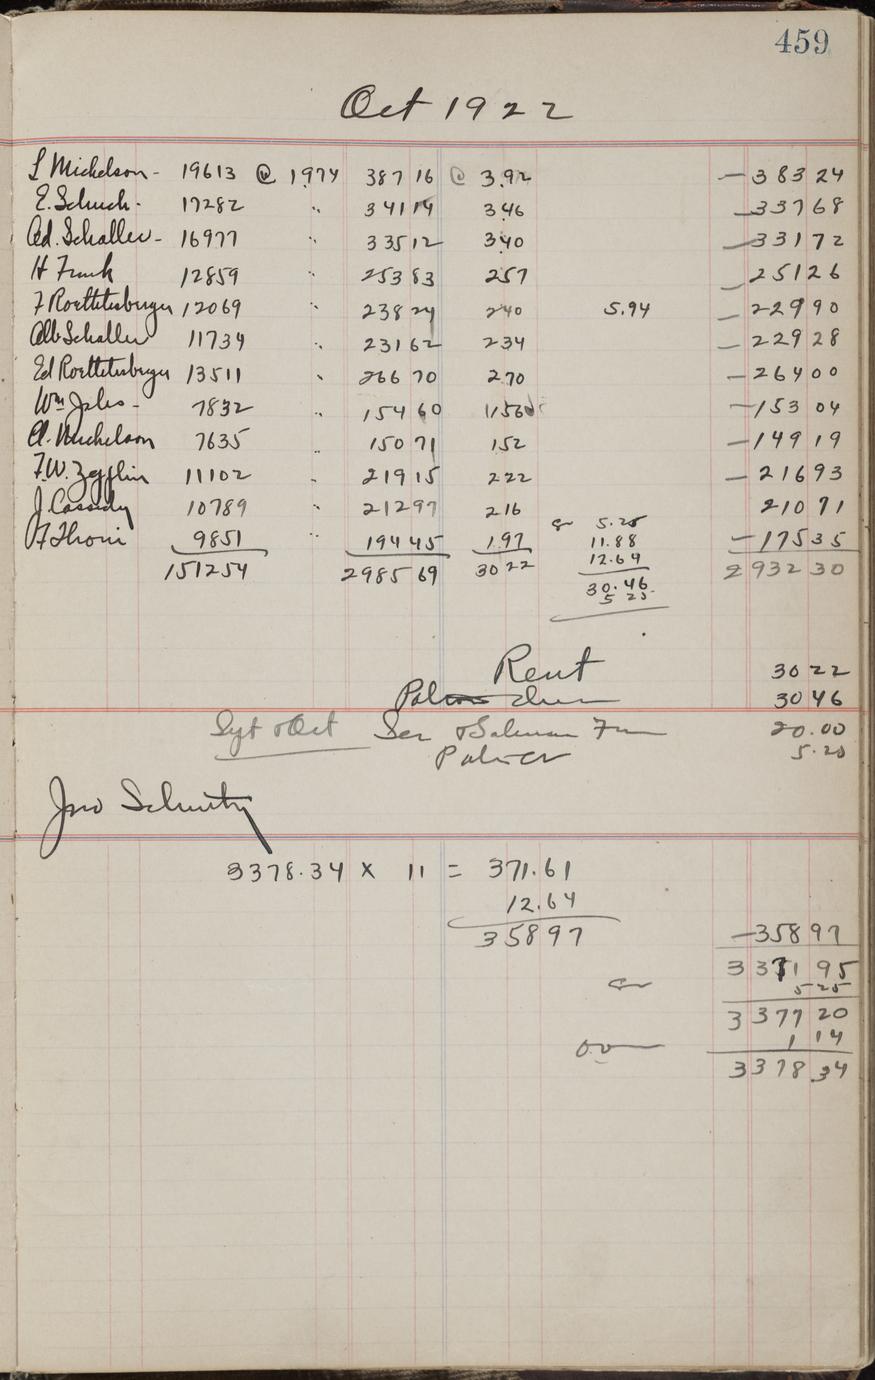 459
Oct 1922
L Mickelson - 19613 @ 1974 387 16 @ 3.92 - 383 24
E. Schuch - 17282 " 341 14 3 46 - 337 68
Ad. Schaller - 16977 " 335 12 3 40 - 331 72
H Frank 12859 " 253 83 2 57 - 251 26
F Roettetsberger 12069 " 238 24 2 40 5.94 - 229 90
Alb Schaller 11734 " 231 62 2 34 - 229 28
Ed Roettetsberger 13511 " 266 70 2 70 - 264 00
Wm Jples - 7832 " 154 60 1.56 - 153 04
A. Mickelson 7635 150 71 1 52 - 149 19
F.W. Zepflin 11102 " 219 15 2 22 - 216 93
J. Cassidy 10789 " 212 97 2 16 210 71
F Thoni 9851 " 194 45 1.97 - 175 35
Cr 5.25
11.88
12.64
151254 2985 69 30 22 30.46 2932 30
5 25
Rent 30 22
30 46
Spt & Oct Ser & Salman 20.00
Palmer 5.20
Jno Schmitz
3378.34 x 11 = 371.61
12.64
358 97 - 358 97
3371 95
Cr 5 25
3377 20
Ov 1 14
3378 34